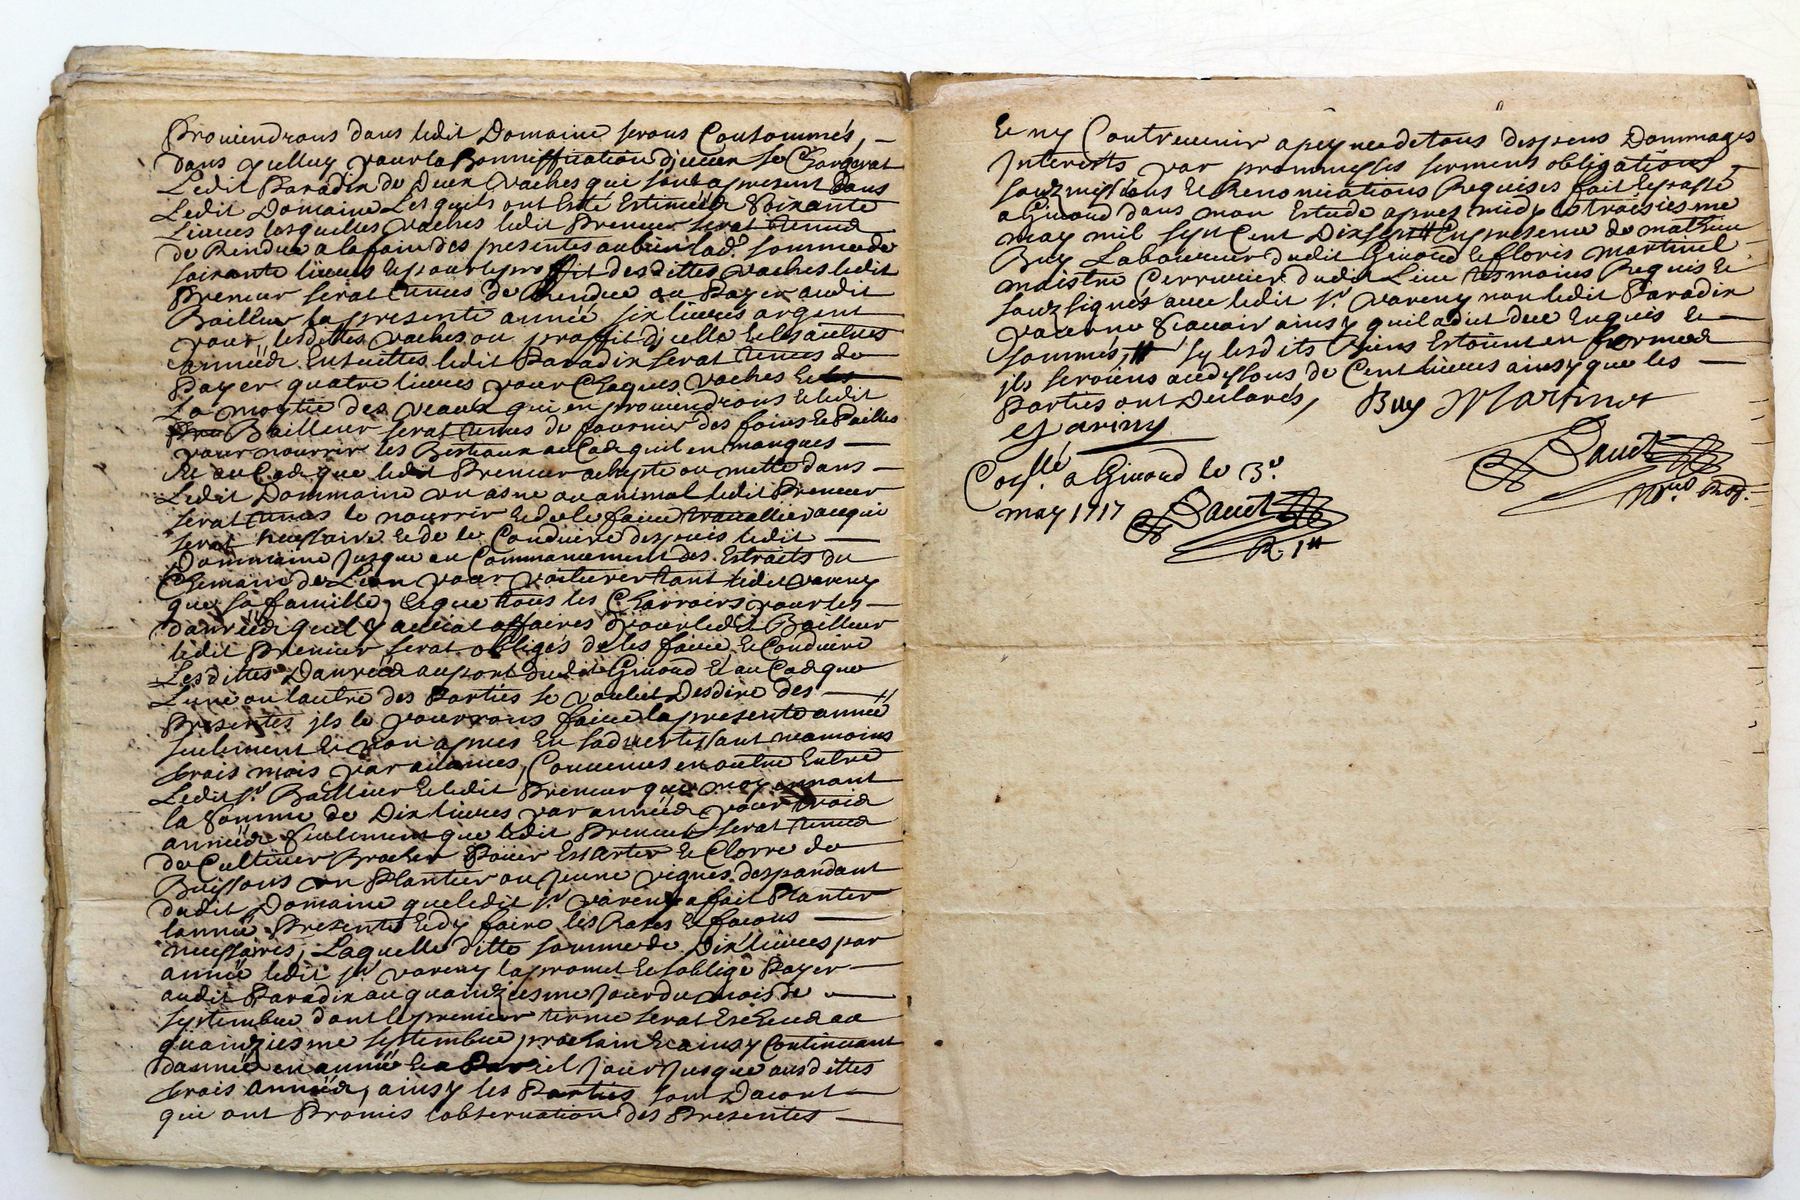 Prouiendrons dans ledit Domaine serons Consommés,
dans Jcelluy pour la Bonniffication d'jceux se Chargerat
Ledit Paradix de Deux vaches qui sont apresent dans
Ledit Domaine Lesquels ont Esté Estimées Soixante
Liures lesquelles vaches ledit Preneur serat tenus
de Rendre a la fain des presentes ou bien lad.e somme de
soixante liures Et pour le proffit desdittes vaches ledit
Preneur serat tenus de Rendre ou Payer audit
Bailleur la presente année six liures argent
pour lesdittes vaches ou proffit d'jcelle Et les autres
années Ensuittes ledit Paradix serat tenus de
Payer quatre liures pour Chaques vaches Et
La moytié des veaux qui en prouiendrons Et ledit
Bailleur serat tenus de fournir des foins Et Pailles
pour nourrir les Bestiaux au Cas quil en manques
Et au Cas que ledit Preneur achepte ou mette dans
Ledit Dommaine vn asne ou animal ledit Preneur
serat tenus le nourrir Et de le faire trauallier a ce qui
serat necessaire Et de le Conduire despuis ledit
Dommaine jusque au Commancement des Estraits du
Chemain de Lion pour voiturer tant ledit vareny
que sa famille, Et que tous les Charroirs pour les
danrées quil y aurat affaires pour ledit Bailleur
ledit Preneur serat obligés de les faire, Et Conduire
Lesdittes Danrées au port dudit Giuord Et au Cas que
L'une ou l'autre des Parties se voulut Desdire des
Presentes jls le pourrons faire la presente année
seulement Et non apres En s'aduertissant neamoins
trois mois par auances, Conuenus en outre Entre
Ledit sr. Bailleur Et ledit Preneur que moyennant
la Somme de Dix liures par années pour trois
années Seulement que ledit Preneur serat tenus
de Cultiuer Brocher Essarter Et Clorre de
Buissons vn Plantier ou jeune vignes despandant
dudit Domaine que ledit sr. vareny a fait Planter
l'année Presente Et d'y faire les Rases Et facons
necessaires, Laquelle ditte somme de Dix liures par
année ledit sr. vareny la promet Et s'oblige Payer
audit Paradix au quainziesme jour du mois de
septembre dont le premier terme serat Escheu au
quainziesme septembre prochain Et ainsy Continuant
d'année en année a Pareil jour jusque ausdittes
trois années, ainsy les Parties sont Dacort
qui ont Promis l'obseruation des Presentes
Et ny Contreuenir a peyne de tous despens Dommages
Interests par prommesses serment obligations
soubzmissions Et Renonciations Requises fait Et passé
a Giuord dans mon Estude apres midy le troisiesme
may mil sept Cent Dix sept En presence de mathieu
Buy Laboureur dudit Giuord Et floris martinet
maistre serrurier dudit Lieu tesmoins Requis Et
soubzsignés auec ledit sr. vareny non ledit Paradix
pour ne Scauoir ainsy quil a dit de ce Enquis Et
sommés, sy lesdits Biens Estoient en fermes
jls seroient au dessous de Cent liures ainsy que les
Parties ont Declarés,
Buy Martinet
Vareny
Corllé. a Giuord le 3e.
may 1717
R. 1tt